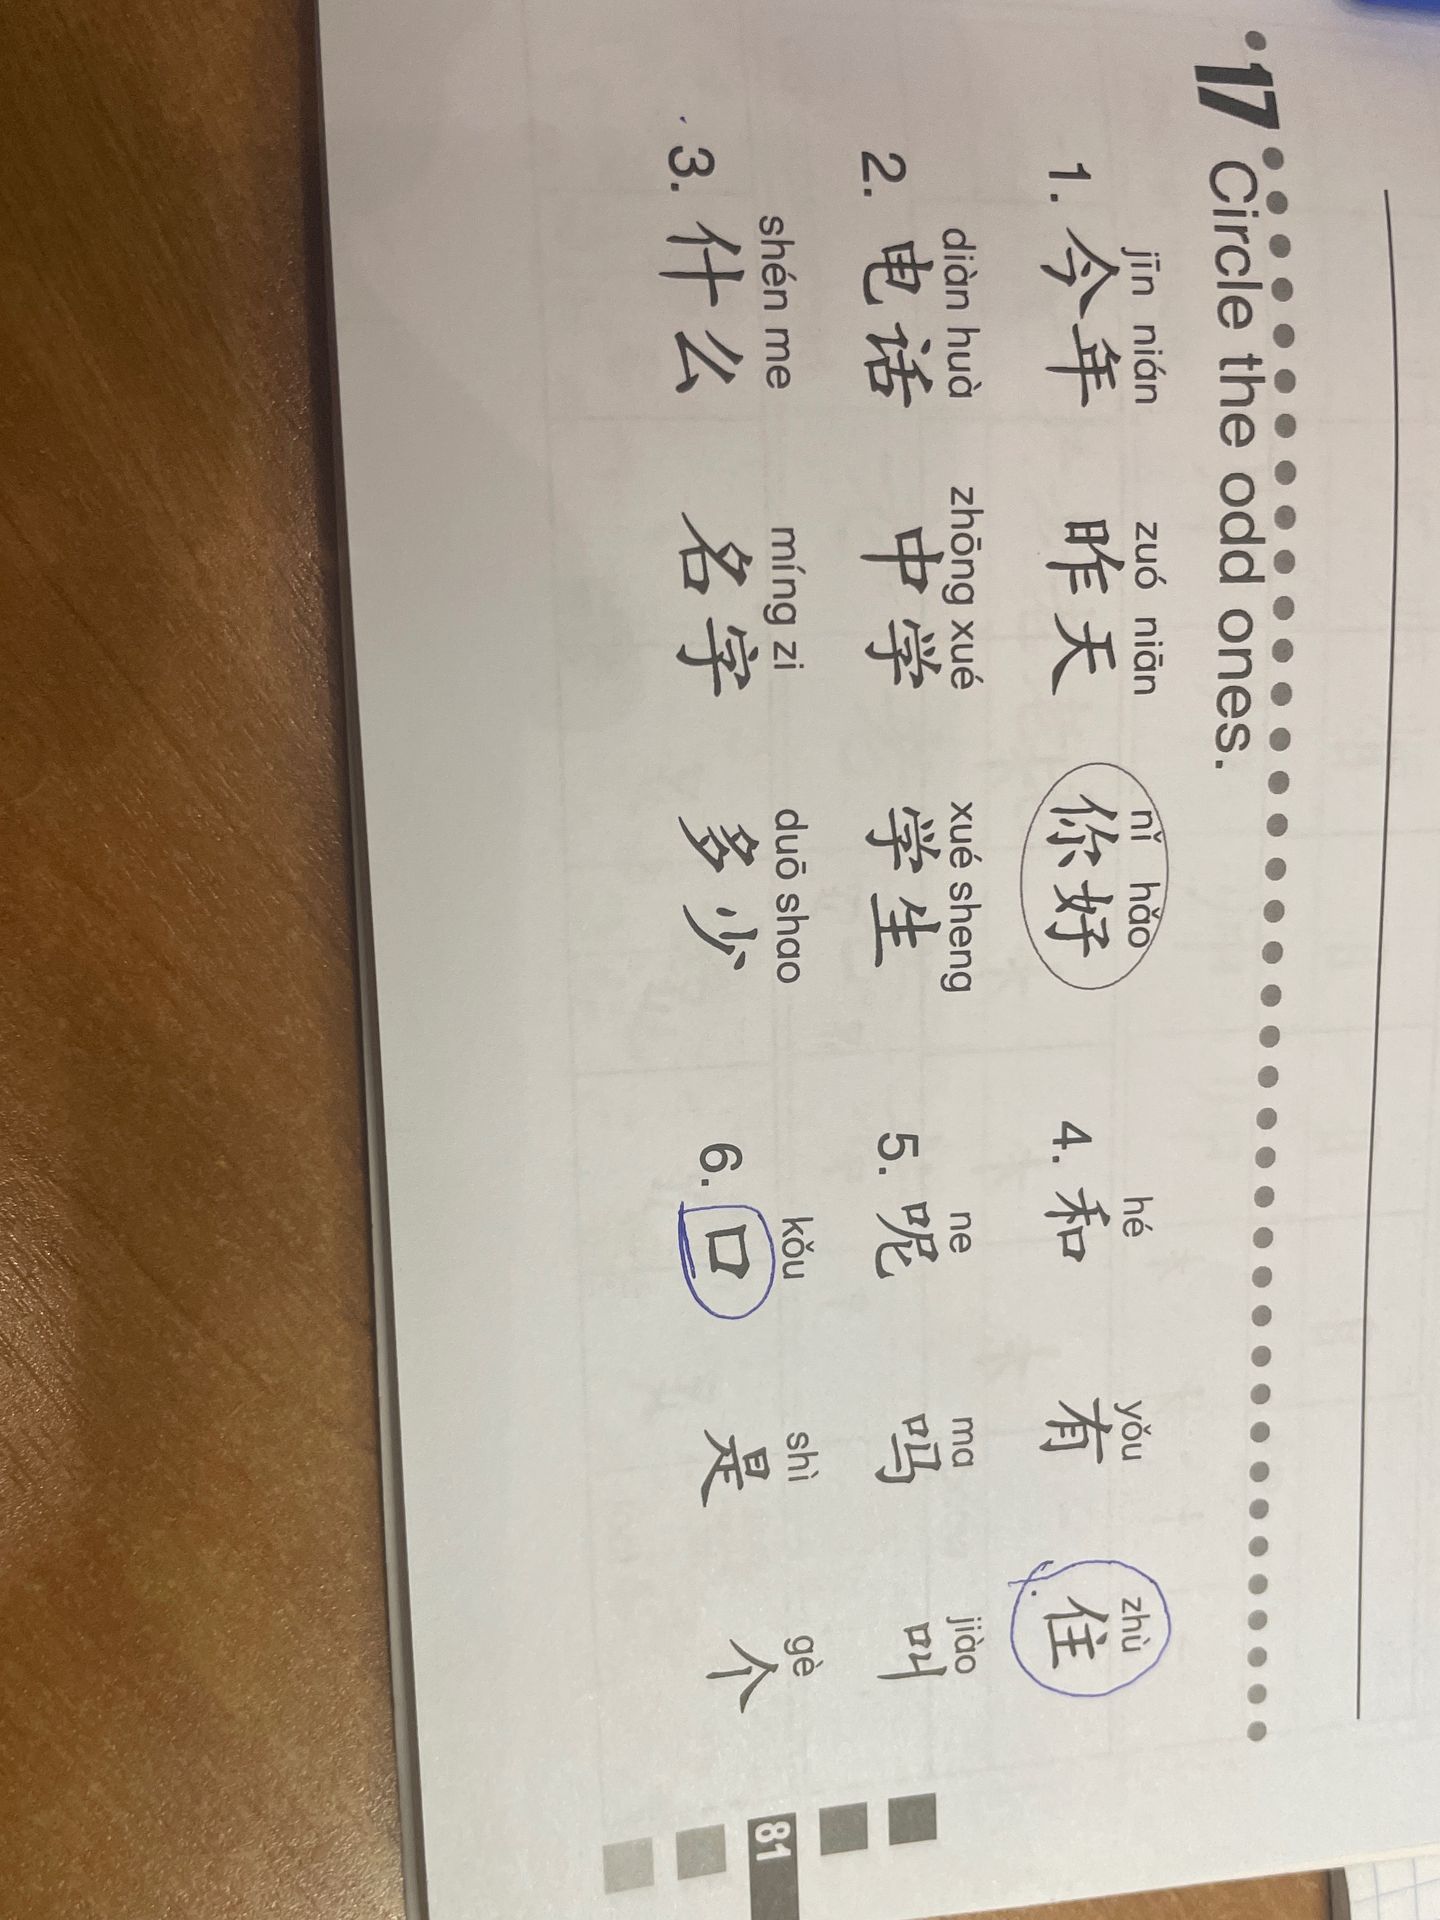 17 Circle the odd ones.
jīn nián zuó niān nǐ hǎo hé yǒu zhù
1. 今年 昨天 你好 4. 和 有 住
diàn huà zhōng xué xué sheng ne ma jiào
2. 电话 中学 学生 5. 呢 吗 叫
shén me míng zi duō shao kǒu shì gè
3. 什么 名字 多少 6. 口 是 个
81